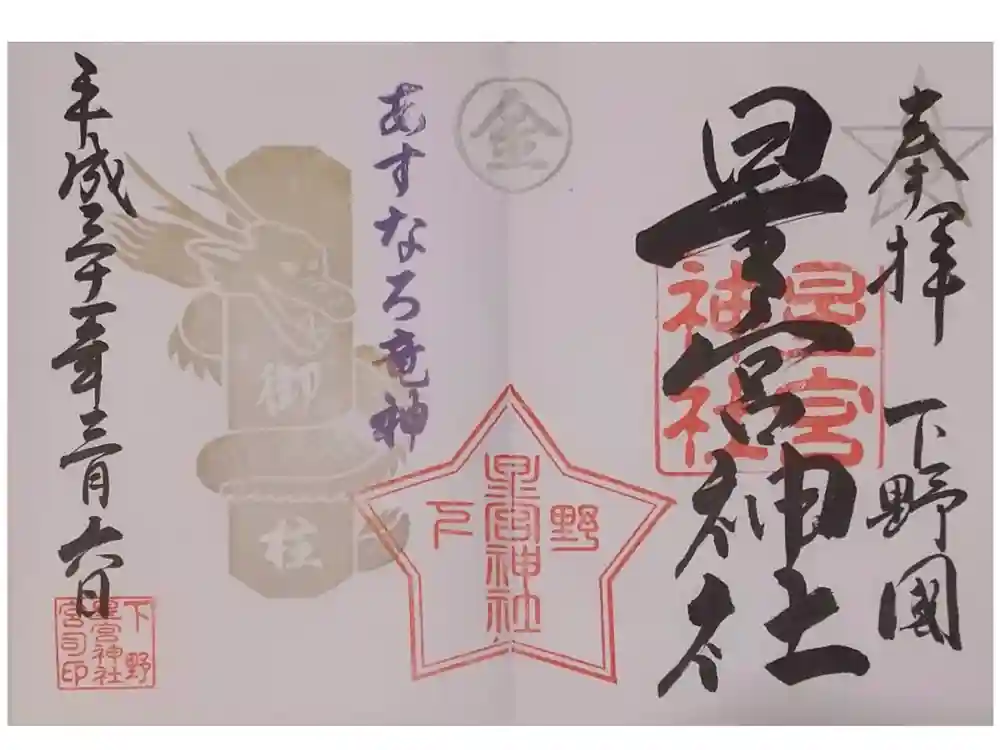 奉拝 下野國
星宮神社
星宮
神社
金
下野
星宮神社
あすなろ竜神
御柱
平成三十一年三月六日
下野
星宮神社
宮司印